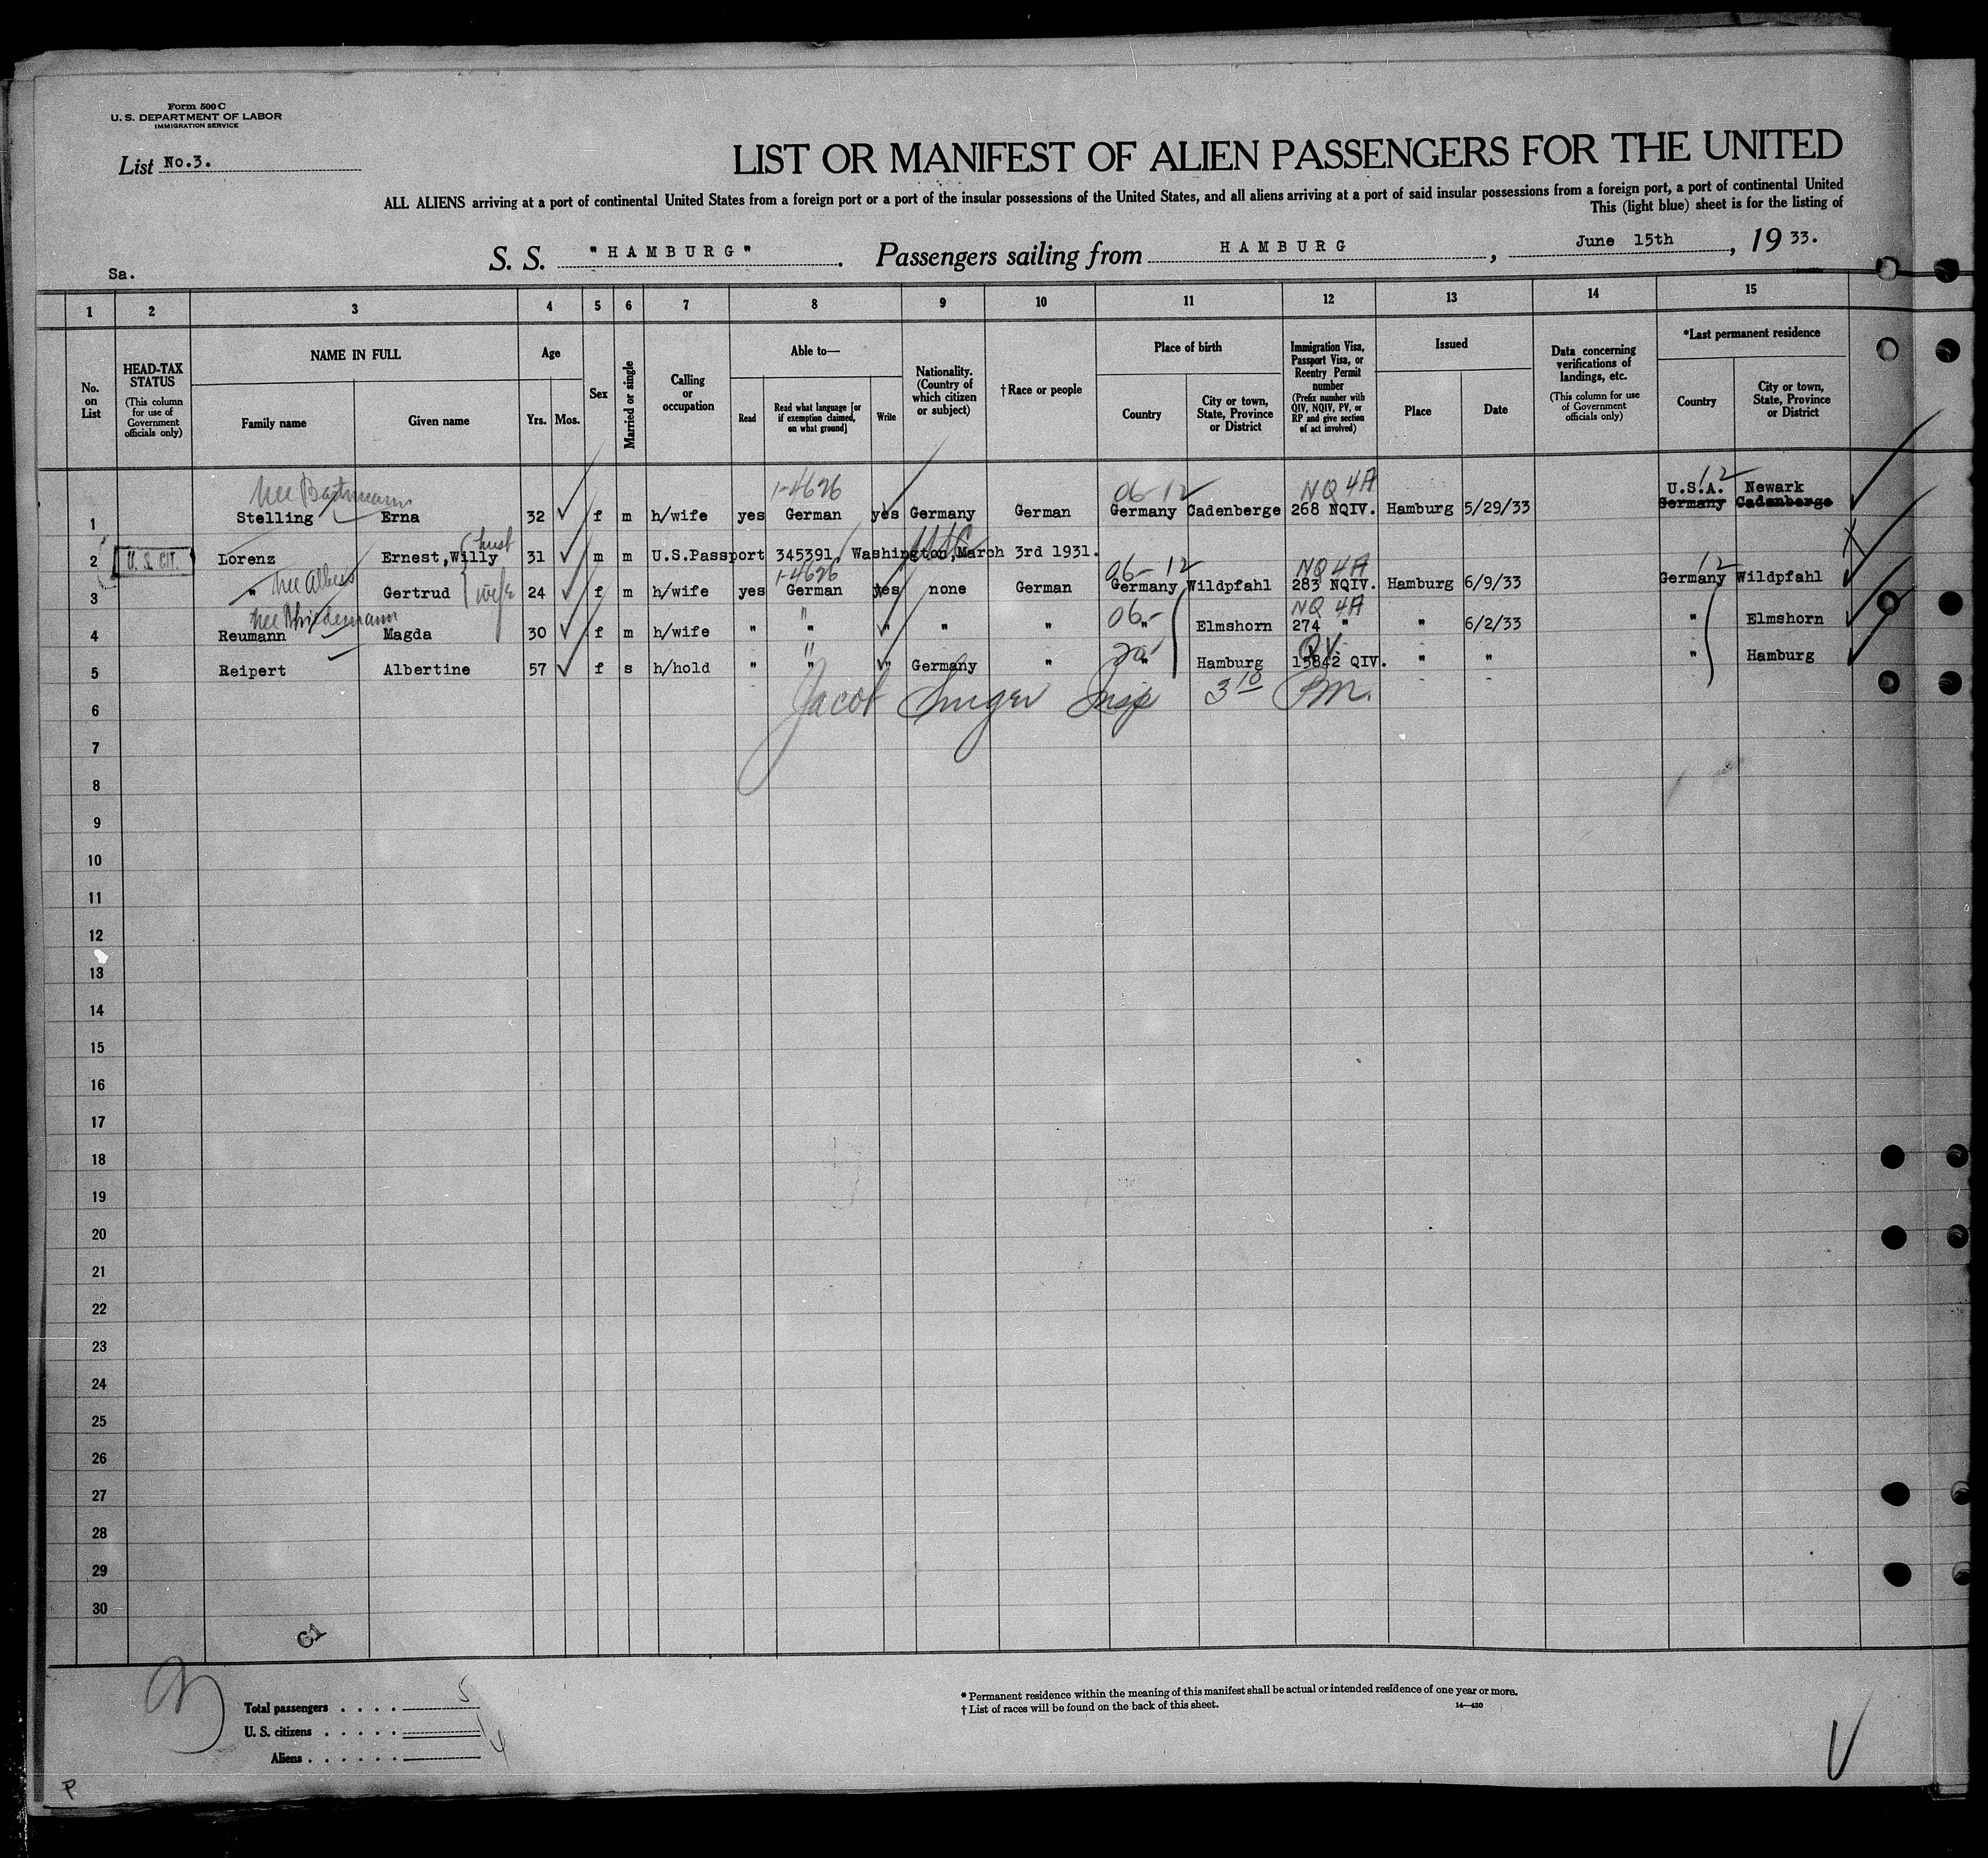 Form 500 C
U. S. DEPARTMENT OF LABOR
IMMIGRATION SERVICE
List No.3.
LIST OR MANIFEST OF ALIEN PASSENGERS FOR THE UNITED
ALL ALIENS arriving at a port of continental United States from a foreign port or a port of the insular possessions of the United States, and all aliens arriving at a port of said insular possessions from a foreign port, a port of continental United
This (light blue) sheet is for the listing of
Sa.
S. S. "HAMBURG". Passengers sailing from HAMBURG, June 15th, 1933.
1 2 3 4 5 6 7 8 9 10 11 12 13 14 15
No. on List
HEAD-TAX STATUS (This column for use of Government officials only)
NAME IN FULL
Family name Given name
Age
Yrs. Mos.
Sex
Married or single
Calling or occupation
Able to—
Read Read what language [or if exemption claimed, on what ground] Write
Nationality. (Country of which citizen or subject)
† Race or people
Place of birth
Country City or town, State, Province or District
Immigration Visa, Passport Visa, or Reentry Permit number (Prefix number with QIV, NQIV, PV, or RP and give section of act involved)
Issued
Place Date
Data concerning verifications of landings, etc. (This column for use of Government officials only)
*Last permanent residence
Country City or town, State, Province or District
nee 1-4626 06-12 NQ 4A 12
U.S.A. Newark
1 Stelling Erna 32 f m h/wife yes German yes Germany German Germany Cadenberge 268 NQIV. Hamburg 5/29/33 Germany Cadenberge
2 U. S. CIT. Lorenz Ernest,Willy husb 31 m m U.S.Passport 345391, Washington,March 3rd 1931.
nee Albers 1-4626 06-12 NQ 4A 12
3 " Gertrud wife 24 f m h/wife yes German yes none German Germany Wildpfahl 283 NQIV. Hamburg 6/9/33 Germany Wildpfahl
nee " 06- NQ 4A
4 Reumann Magda 30 f m h/wife " " " " " " Elmshorn 274 " " 6/2/33 " Elmshorn
" QV
5 Reipert Albertine 57 f s h/hold " " " Germany " " Hamburg 15842 QIV. " " " Hamburg
6 Jacob Singer Insp 3 10 PM.
7
8
9
10
11
12
13
14
15
16
17
18
19
20
21
22
23
24
25
26
27
28
29
30
61
Total passengers . . . . 5
U. S. citizens . . . . . 1
Aliens . . . . . . 4
* Permanent residence within the meaning of this manifest shall be actual or intended residence of one year or more.
† List of races will be found on the back of this sheet. 14—430
P